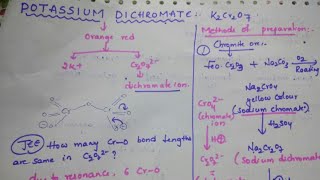 POTASSIUM DICHROMATE:- K2Cr2O7
Orange red
2K+ Cr2O7²⁻
dichromate ion.
JEE How many Cr-O bond lengths
are same in Cr2O7²⁻?
due to resonance, 6 Cr-O
Methods of preparation:-
① Chromite ore:-
FeO.Cr2O3 + Na2CO3 O2
Roasting
Na2CrO4
yellow colour
(sodium chromate)
CrO4²⁻
(chromate)
ion
H2SO4
H⊕
Cr2O7²⁻ Na2Cr2O7
(sodium dichromate